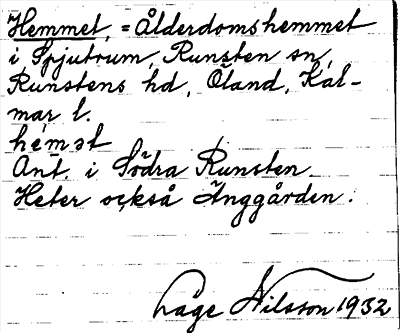 Hemmet, = Ålderdomshemmet
i Spjutrum, Runsten sn,
Runstens hd, Öland, Kal-
mar l.
hèmət
Ant. i Södra Runsten.
Heter också Änggården.
Låge Nilsson 1932